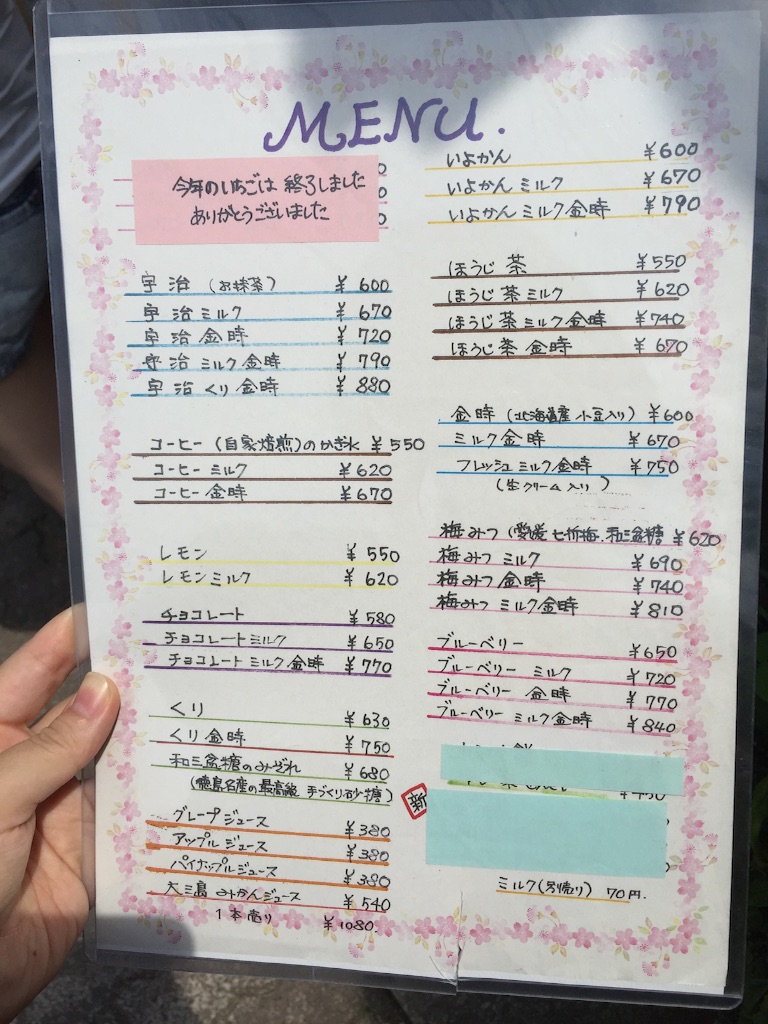 MENU.
今年のいちごは 終了しました
ありがとうございました
宇治 (お抹茶) ¥600
宇治ミルク ¥670
宇治金時 ¥720
宇治ミルク金時 ¥790
宇治くり金時 ¥880
コーヒー(自家焙煎)のかき氷 ¥550
コーヒーミルク ¥620
コーヒー金時 ¥670
レモン ¥550
レモンミルク ¥620
チョコレート ¥580
チョコレートミルク ¥650
チョコレートミルク金時 ¥770
くり ¥630
くり金時 ¥750
和三盆糖のみぞれ ¥680
(徳島名産の最高級 手づくり砂糖)
グレープジュース ¥380
アップルジュース ¥380
パイナップルジュース ¥380
大三島みかんジュース ¥540
1本売り ¥1080.
いよかん ¥600
いよかんミルク ¥670
いよかんミルク金時 ¥790
ほうじ茶 ¥550
ほうじ茶ミルク ¥620
ほうじ茶ミルク金時 ¥740
ほうじ茶金時 ¥670
金時(北海道産 小豆入り) ¥600
ミルク金時 ¥670
フレッシュミルク金時 ¥750
(生クリーム入り)
梅みつ(愛媛 七折梅.和三盆糖 ¥620
梅みつミルク ¥690
梅みつ金時 ¥740
梅みつミルク金時 ¥810
ブルーベリー ¥650
ブルーベリーミルク ¥720
ブルーベリー金時 ¥770
ブルーベリーミルク金時 ¥840
新
ミルク(別売り) 70円.